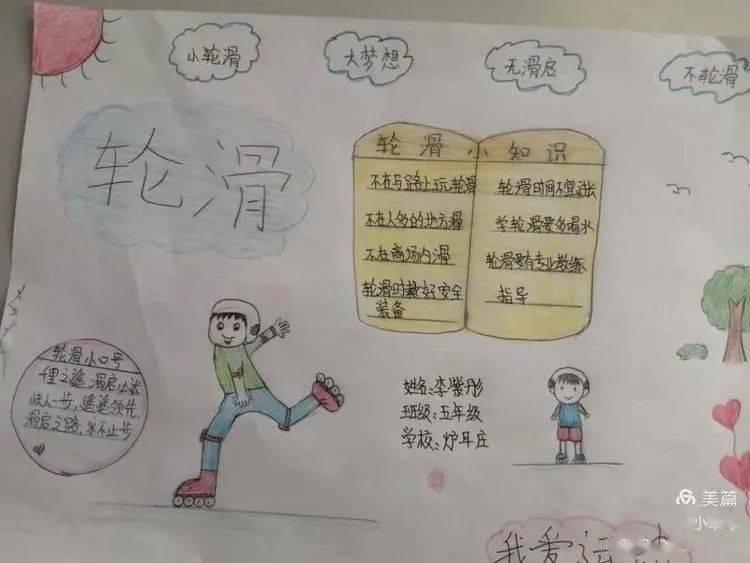 小轮滑
大梦想
无滑启
不轮滑
轮滑
轮滑小知识
不在马路上玩轮滑
不在人多的地方滑
不在商场内滑
轮滑时戴好安全
装备
轮滑时间不宜过长
学轮滑要多喝水
轮滑要有专业教练
指导
轮滑小口号
一步,遥遥领先
滑启之路,永不止步
姓名:李紫彤
班级:五年级
学校:炉耳庄
我爱运
美篇